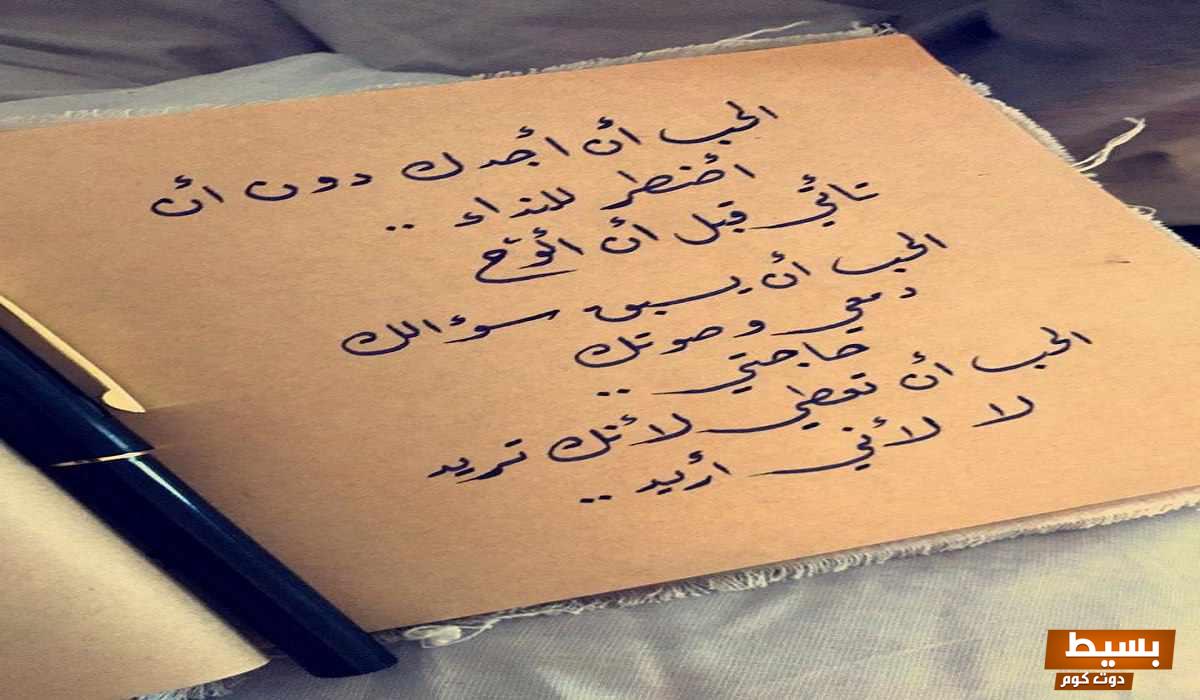 الحب أن أجدك دون أن
أضطر للنداء ..
تأتي قبل أن ألوّح
الحب أن يسبق سؤالك
دمعي وصوتك
حاجتي ..
الحب أن تعطي لأنك تريد
لا لأني أريد ..
بسيط
دوت كوم